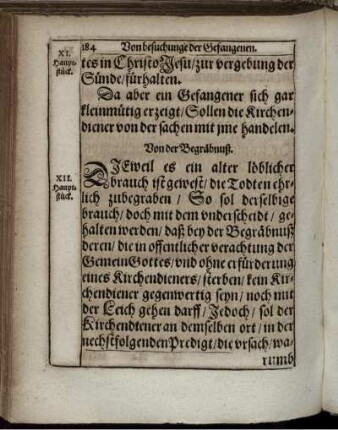 184 Von besuchunge der Gefangenen.
XI.
Haupt-
stück.
tes in Christo Jesu/ zur vergebung der
Sünde/ fürhalten.
Da aber ein Gefangener sich gar
kleinmütig erzeigt/ Sollen die Kirchen-
diener von der sachen mit jme handelen.
Von der Begräbnuß.
XII.
Haupt-
stück.
DJEweil es ein alter löblicher
brauch ist gewest/ die Todten ehr-
lich zubegraben/ So sol derselbige
brauch/ doch mit dem vnderscheidt/ ge-
halten werden/ daß bey der Begräbnuß
deren/ die in offentlicher verachtung der
Gemein Gottes/ vnd ohne erfürderung
eines Kirchendieners/ sterben/ kein Kir-
chendiener gegenwertig seyn/ noch mit
der Leich gehen darff/ Jedoch/ sol der
Kirchendiener an demselben ort/ in der
nechstfolgenden Predigt/ die vrsach/ wa-
rumb